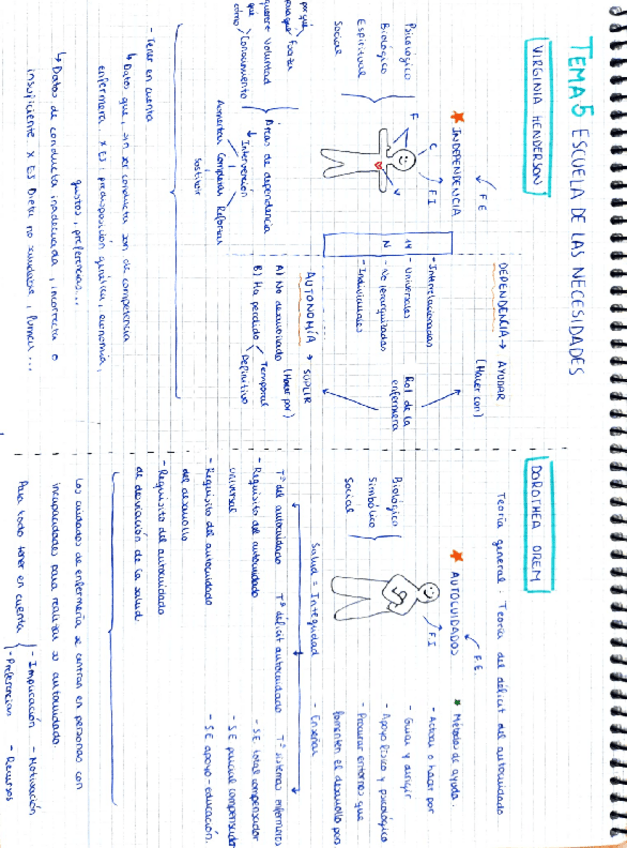 TEMA 5 ESCUELA DE LAS NECESIDADES
VIRGINIA HENDERSON
★ INDEPENDENCIA
F.E.
F.I
Psicológico
Biológico
Espiritual
Social
F
C
V
14
N
DEPENDENCIA → AYUDAR
(Hacer con)
- Interrelacionadas
- Universales
- No jerarquizadas
- Individuales
Rol de la
enfermera
AUTONOMÍA → SUPLIR
(Hacer por)
A) No desarrollado
B) Ha perdido
Temporal
Definitivo
por qué
para qué
Fuerza
quiere Voluntad
qué
cómo
Conocimiento
Áreas de dependencia
↓ Intervención
Aumentar Completar Reforzar
Sustituir
- Tener en cuenta
↳ Datos que sin ser conducta son de competencia
enfermera. x Ej: predisposición genética, economía,
gustos, preferencias...
↳ Datos de conducta inadecuada, incorrecta o
insuficiente. x Ej Dieta no saludable, fumar...
DOROTHEA OREM
Teoría general. Teoría del déficit del autocuidado
★ AUTOCUIDADOS
F.E.
F.I
Biológico
Simbólico
Social
Métodos de ayuda.
- Actuar o hacer por
- Guiar y dirigir
- Apoyo físico y psicológico
- Procurar entornos que
fomenten el desarrollo per
- Enseñar
Salud = Integridad
Tª del autocuidado Tª déficit autocuidado Tª sistemas enfermeros
- Requisito del autocuidado
universal
- Requisito del autocuidado
del desarrollo
- Requisito del autocuidado
de desviación de la salud
- S.E total compensador
- S.E parcial compensador
- S.E apoyo-educación.
Los cuidados de enfermería se centran en personas con
incapacidades para realizar su autocuidado.
Para todo tener en cuenta
- Implicación - Motivación
- Preferencias - Recursos